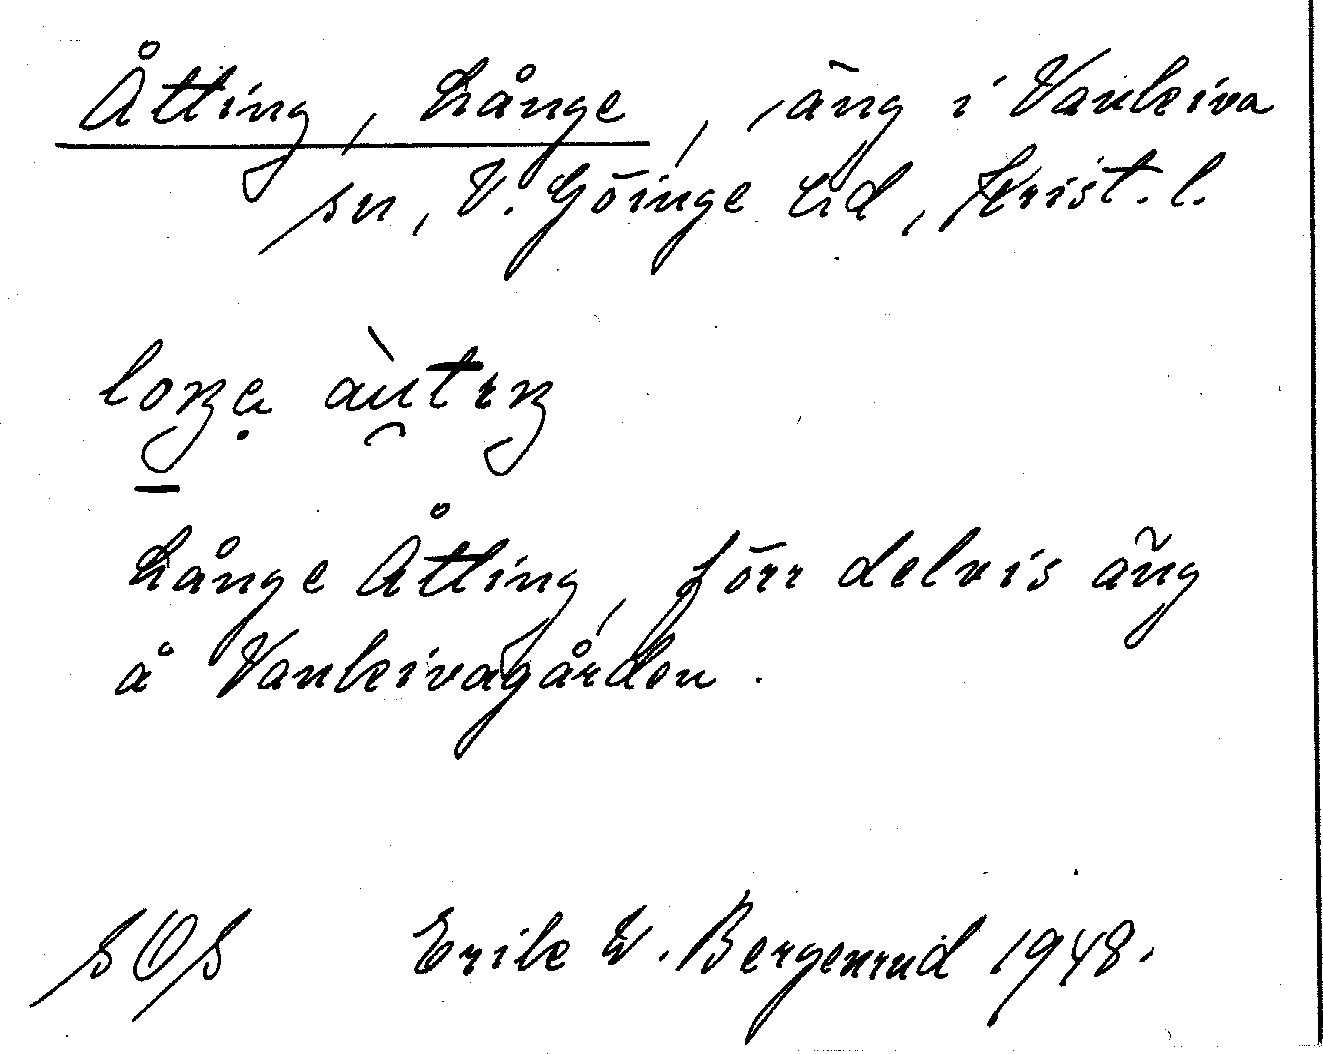 Åtting, Långe, äng i Vankiva
sn, V. Göinge hd, Krist. l.
Långe Åtting, förr delvis äng
å Vankivagården.
SOS Erik W. Bergenrud 1948.